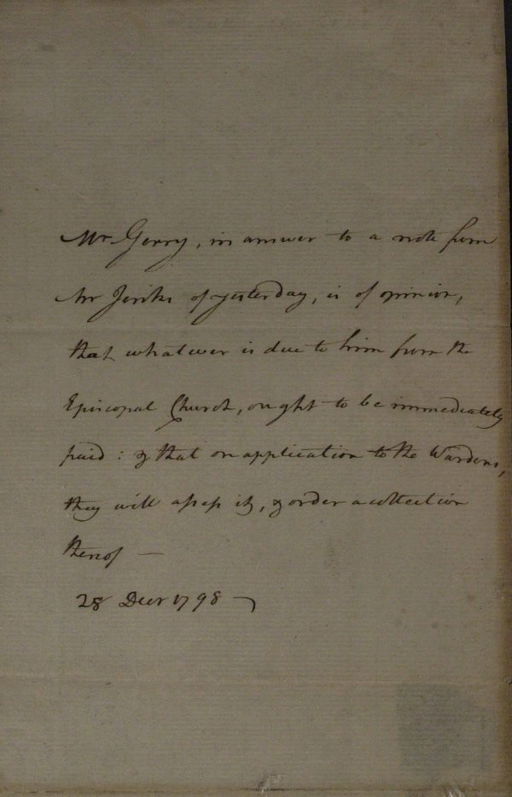 Mr Gerry, in answer to a note from
Mr Jenks of yesterday, is of opinion,
that whatever is due to him from the
Episcopal Church, ought to be immediately
paid: & that on application to the Wardens,
they will assess it, & order a collection
thereof —
28 Decr 1798